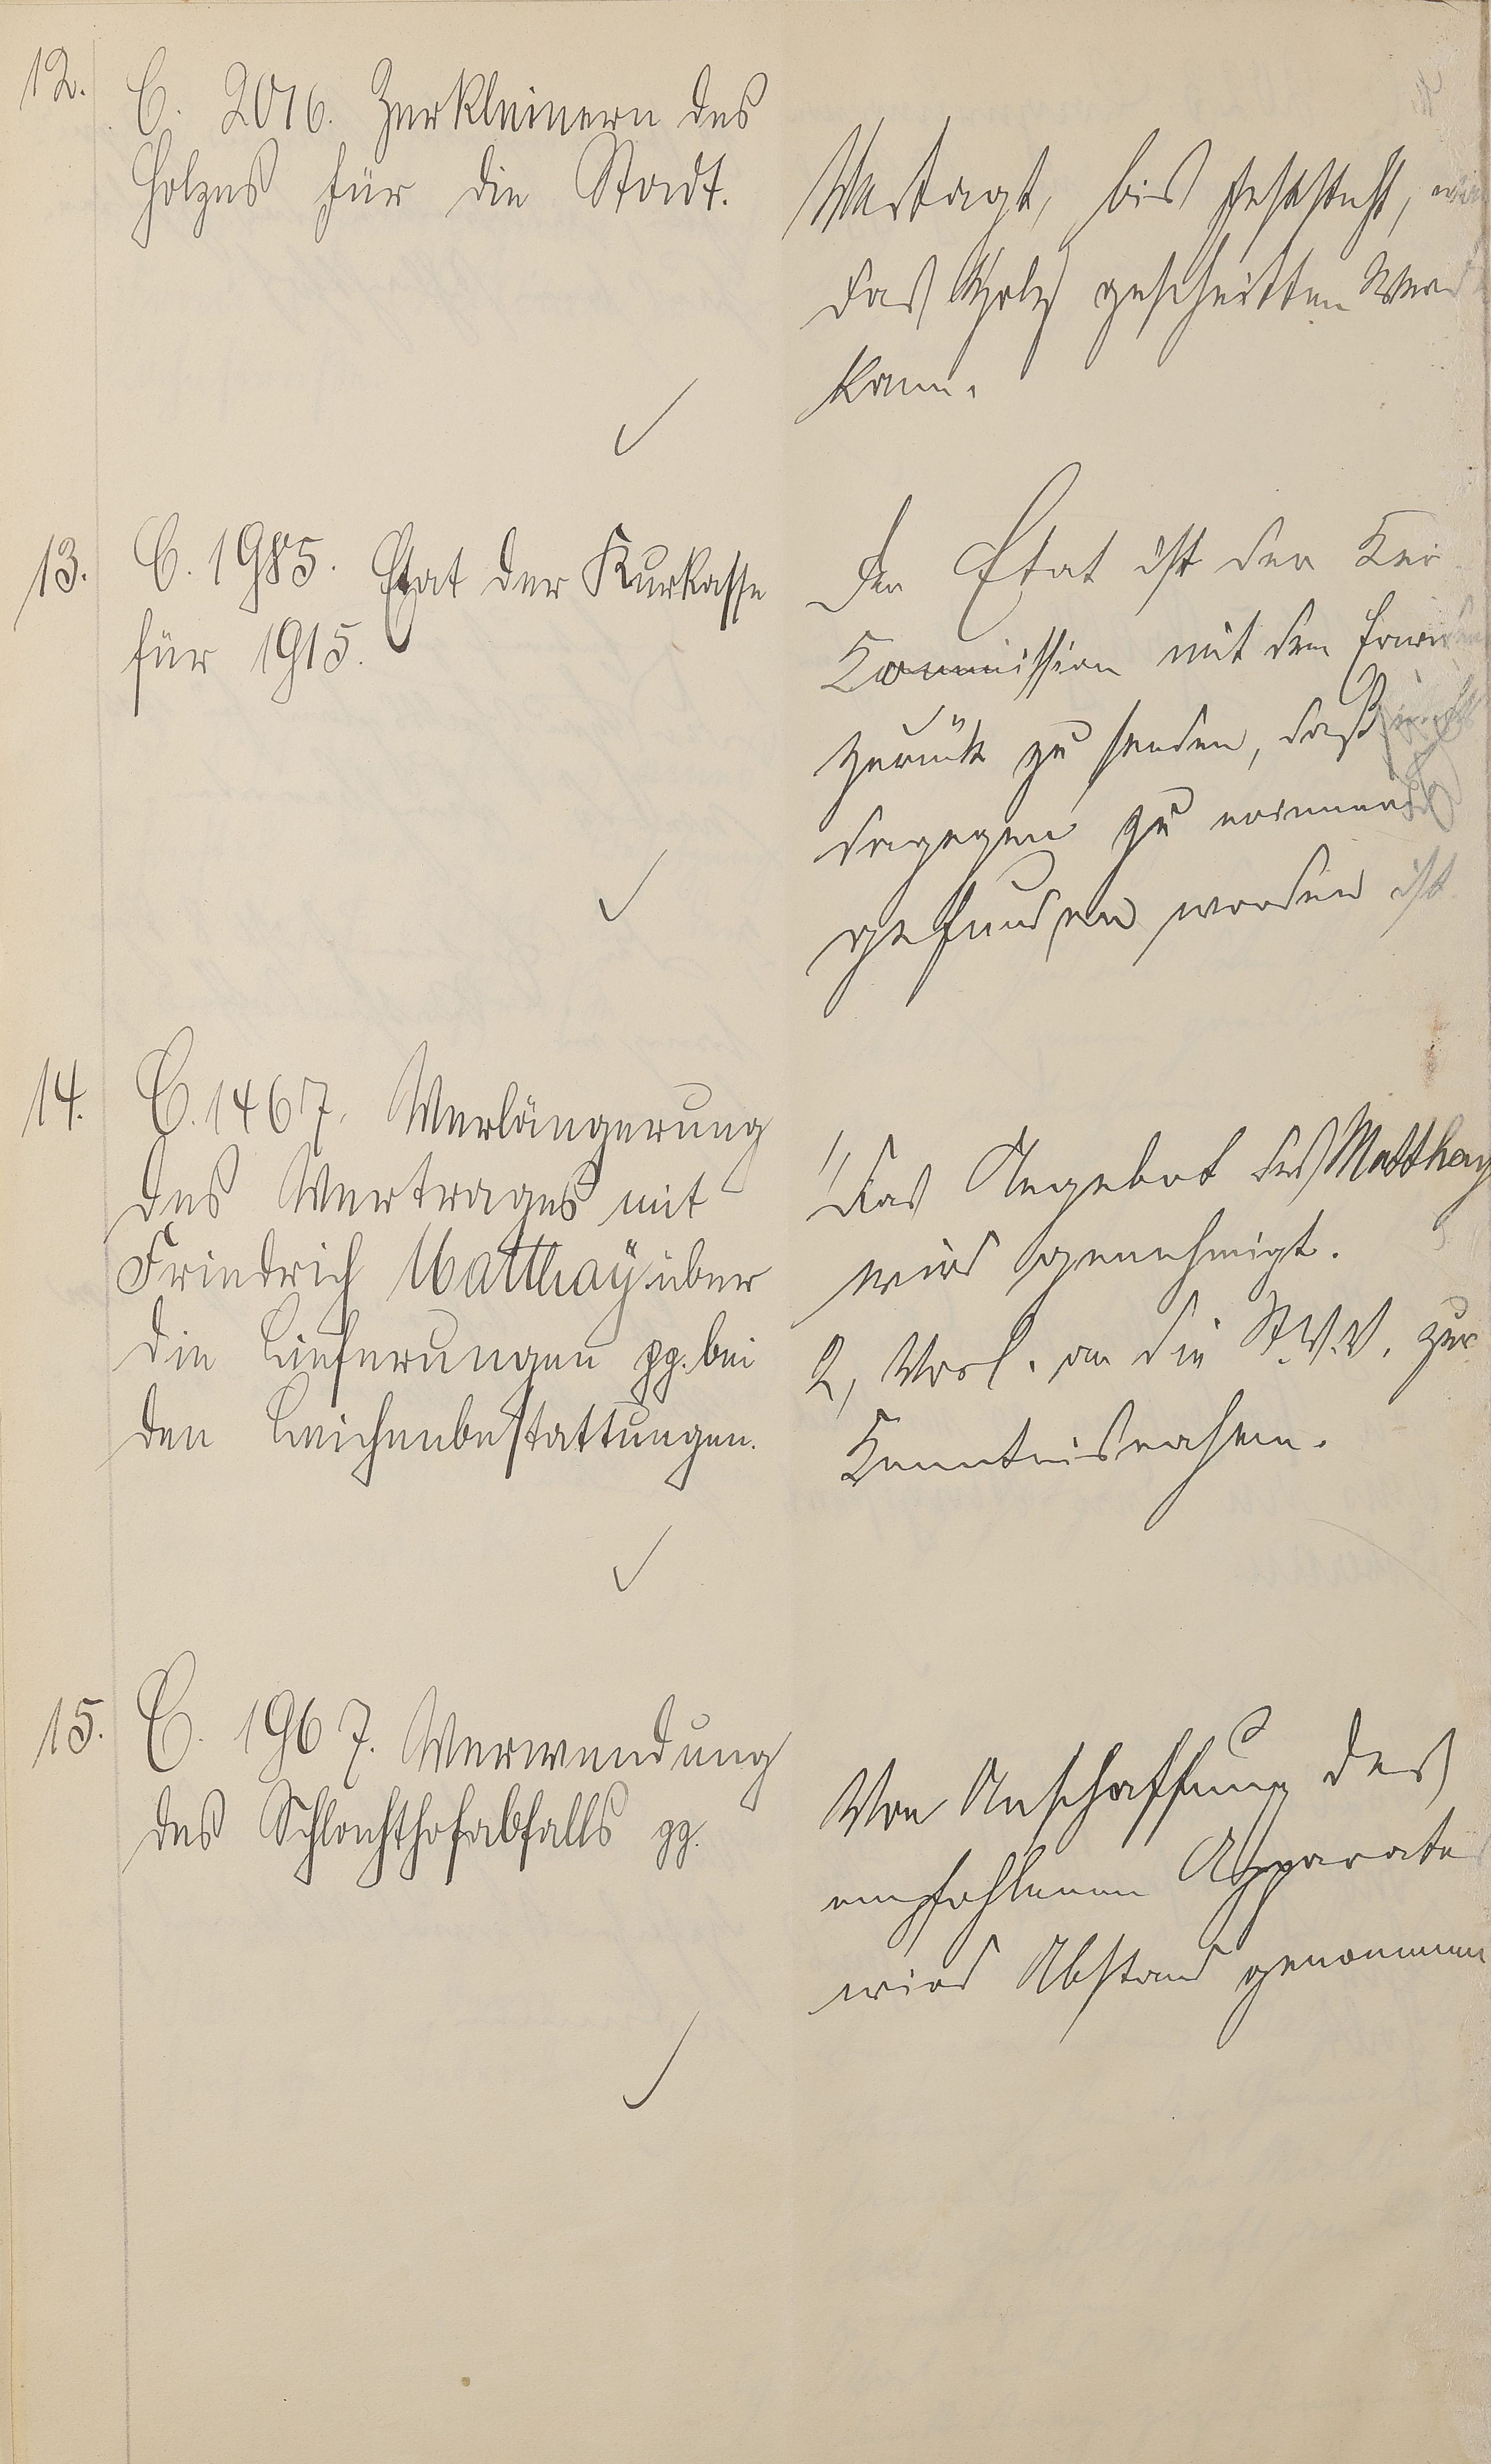 12.
C. 2016. Zerkleinern des
Holzes für die Stadt.
Vertagt, bis feststeht, wie
das Holz geschnitten werd
kann.
13.
C. 1985. Etat der Kurkasse
für 1915.
Der Etat ist der Kur
Kommission mit dem
zurück zu senden, daß nichts
dagegen zu erinnern
gefunden worden ist.
14.
C. 1467. Verlängerung
des Vertrages mit
Friedrich Matthay über
die Lieferungen pp. bei
den Leichenbestattungen.
1, Das Angebot des Matthay
wird genehmigt.
2, Vorl. an die St.V.V. zur
Kenntnisnahme.
15.
C. 1967. Verwendung
des Schlachthofabfalls pp.
Von Anschaffung des
empfohlenen Apparates
wird Abstand genommen